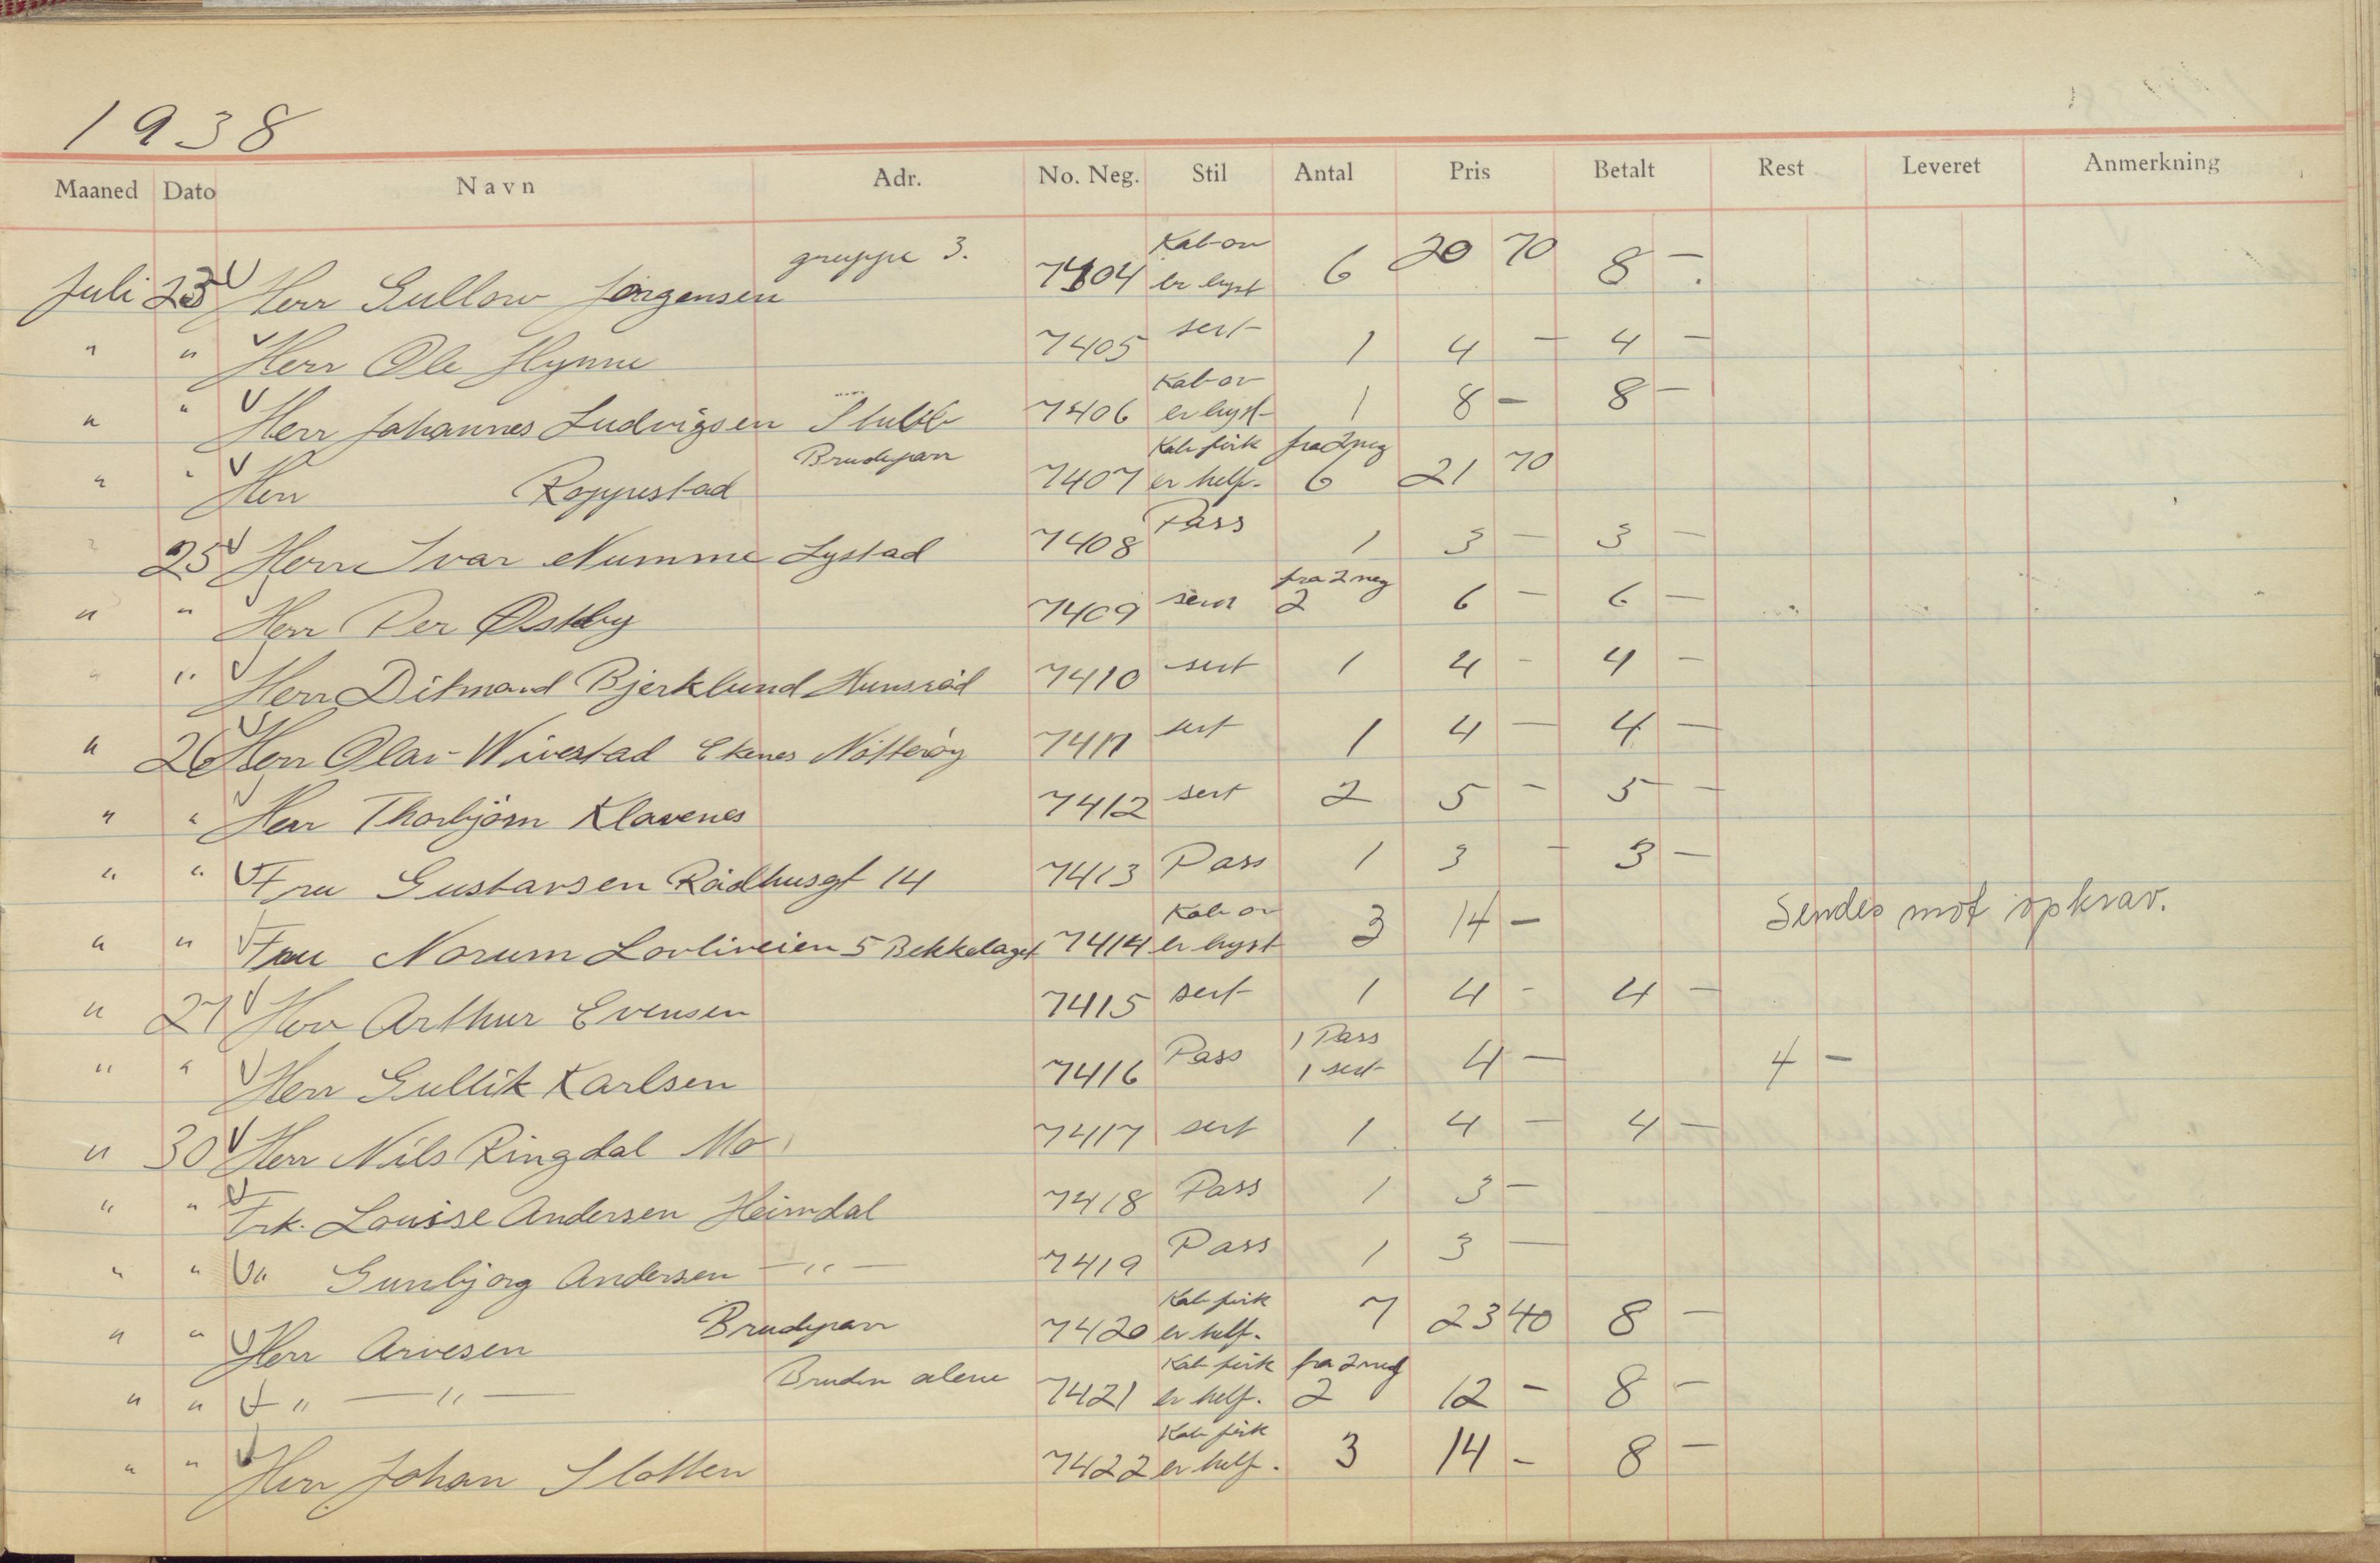 1938
Maaned Dato Navn Adr. No. Neg. Stil Antal Pris Betalt Rest Leveret Anmerkning
gruppe 3. Kab ov
Juli 23 Herr Gullow Jørgensen 7404 er lyst 6 20 70 8 -.
" " Herr Ole Hynne 7405 sert 1 4 - 4 -
Kab ov
" " Herr Johannes Ludvigsen Stubb 7406 er lyst 1 8 - 8 -
Brudepar Kab firk fra 2 neg
" " Herr Roppestad 7407 er helf. 6 21 70
" 25 Herr Ivar Numme Lystad 7408 Pass 1 3 - 3 -
fra 2 neg
" " Herr Per Østby 7409 2 6 - 6 -
" " Herr Ditmand Bjerklund Hunsrød 7410 sert 1 4 - 4 -
" 26 Herr Olav Wivestad Ekenes Nøtterøy 7411 sert 1 4 - 4 -
" " Herr Thorbjørn Klavenes 7412 sert 2 5 - 5 -
" " Fru Gustavsen Rådhusgt 14 7413 Pass 1 3 - 3 -
Kab ov
" " Fru Norum Lovliveien 5 Bekkelaget 7414 er lyst 3 14 - Sendes mot opkrav.
" 27 Herr Arthur Evensen 7415 sert 1 4 - 4 -
1 Pass
" " Herr Gullik Karlsen 7416 Pass 1 sert 4 - 4 -
" 30 Herr Nils Ringdal Mo 7417 sert 1 4 - 4 -
" " Frk. Louise Andersen Heimdal 7418 Pass 1 3 -
" " " Gunbjørg Andersen - " - 7419 Pass 1 3 -
Brudepar Kab firk
" " Herr Arvesen 7420 er helf. 7 23 40 8 -
Bruden alene Kab firk fra 2 neg
" " " - " - 7421 er helf. 2 12 - 8 -
Kab firk
" " Herr Johan Slotten 7422 er helf. 3 14 - 8 -